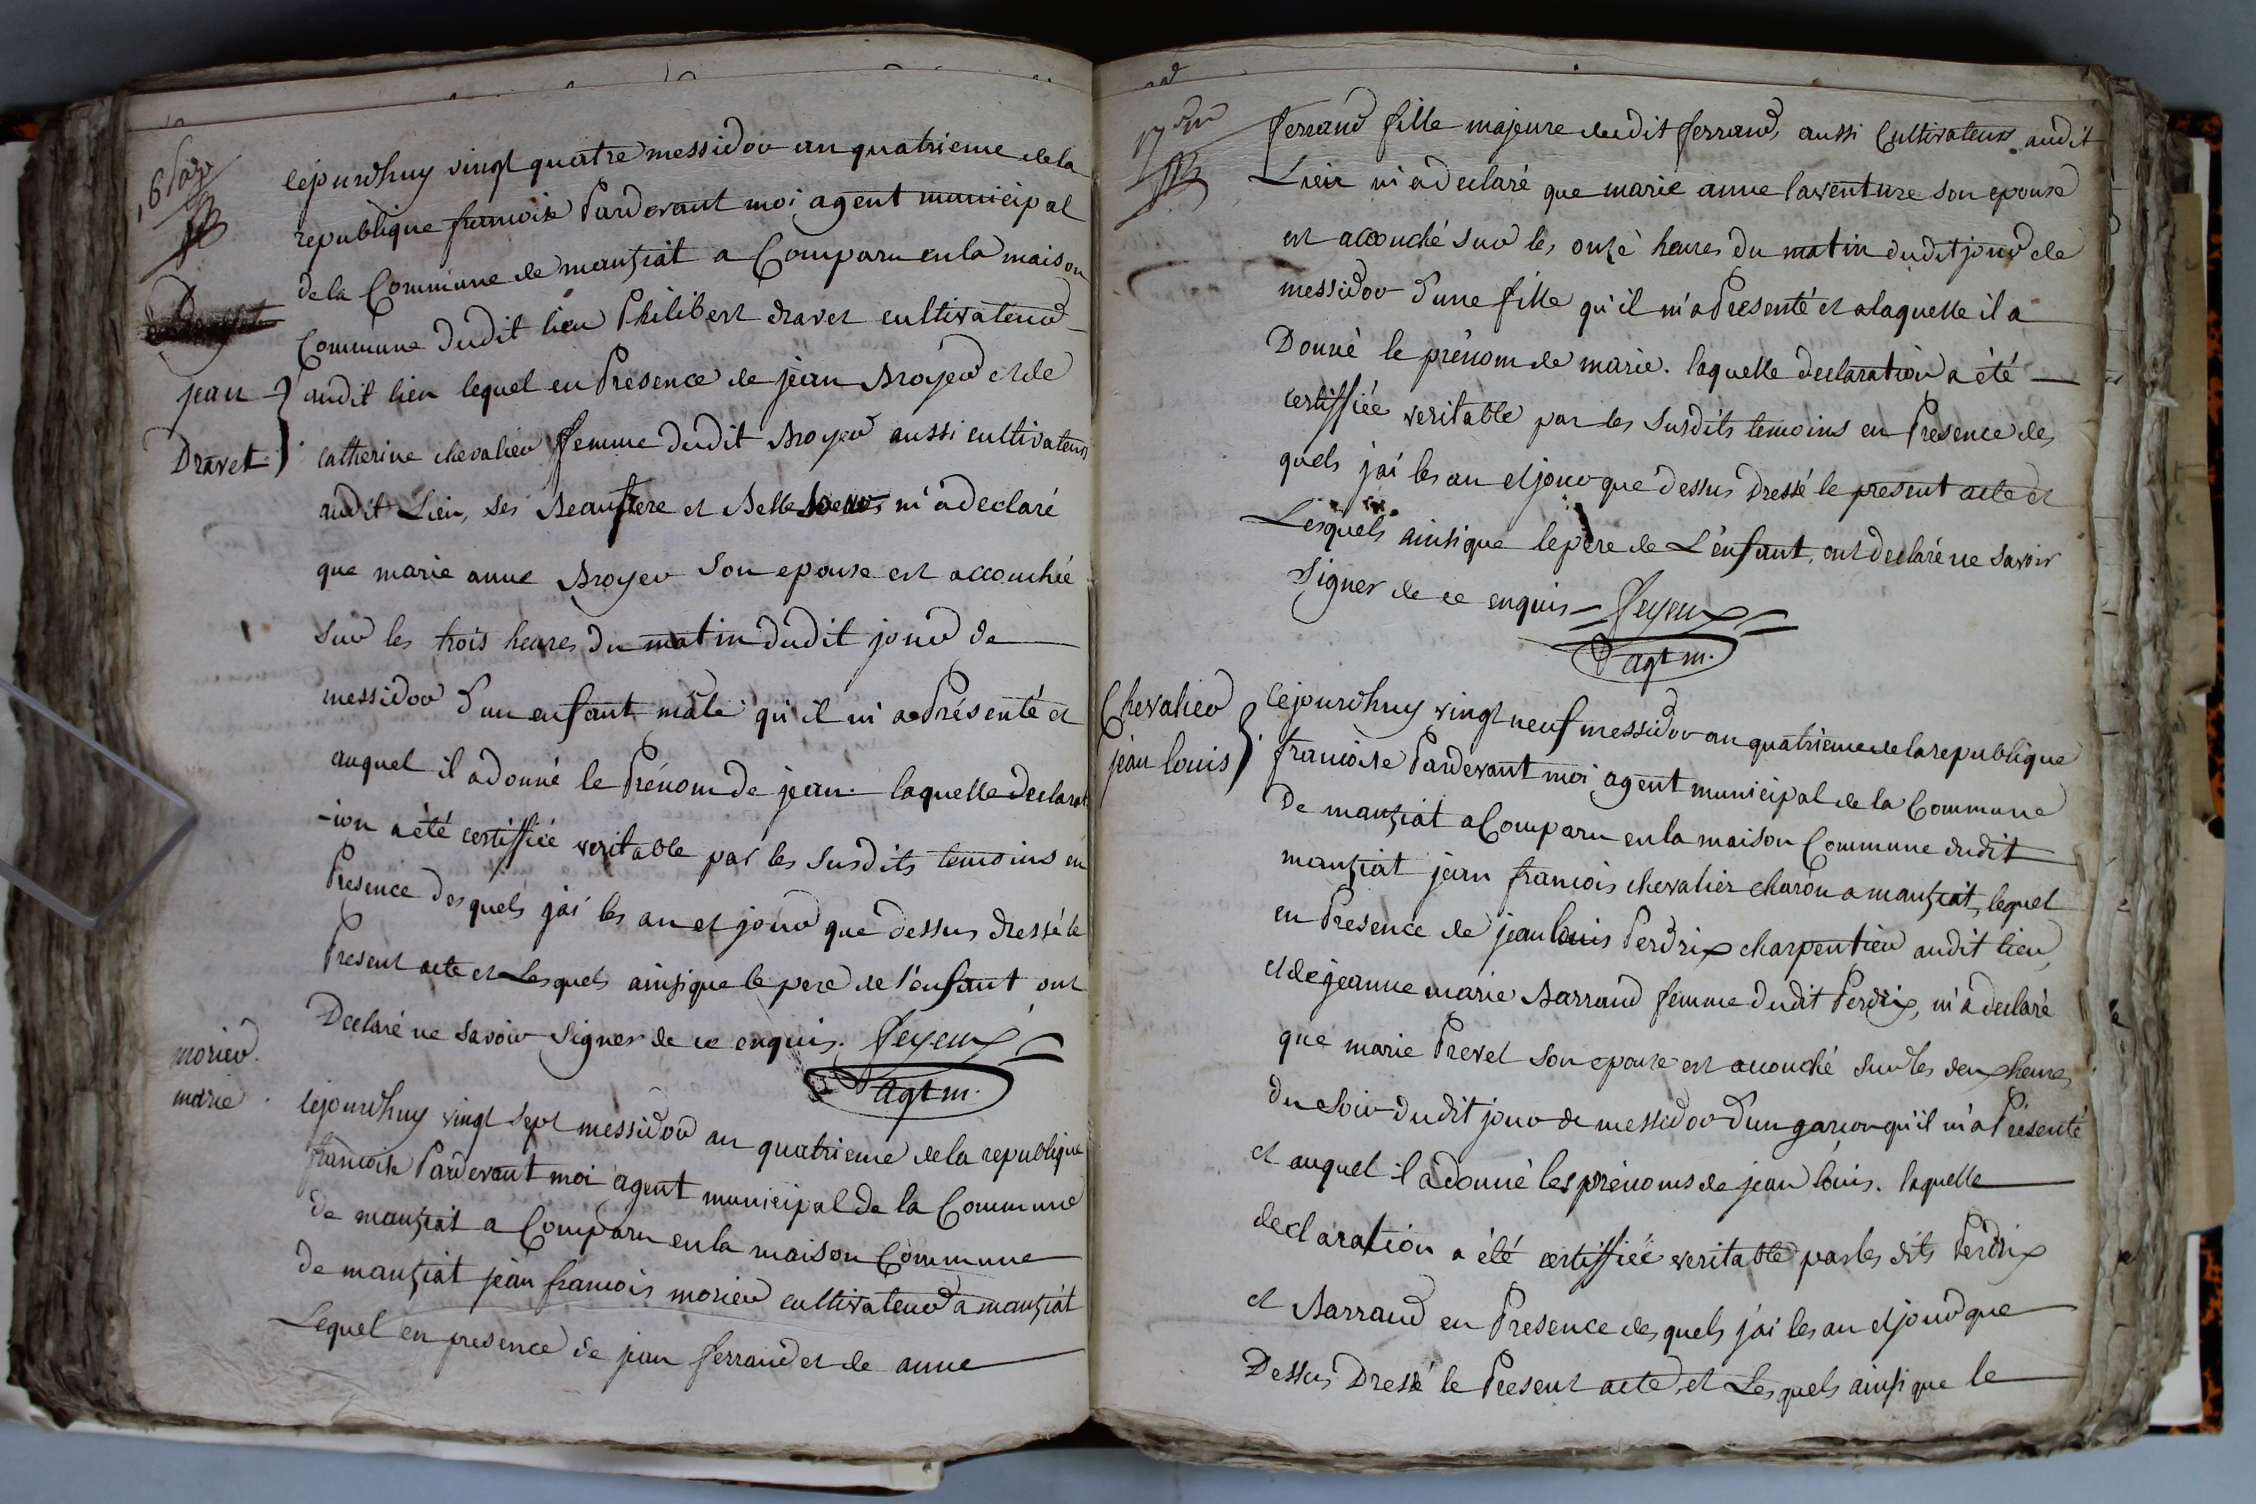 cejourdhuy vingt quatre messidor an quatrieme de la
republique francoise Pardevant moi agent municipal
de la Commune de mantziat a Comparu en la maison
Commune dudit lieu Philibert dravet cultivateur
jean
audit lieu lequel en Presence de jean Broyer et de
Dravet
catherine chevalier femme dudit Broyer aussi cultivateurs
audit Lieu, ses Beaufrere et Belle soeur m'a declaré
que marie anne Broyer son epouse est accouchée
sur les trois heures du matin dudit jour de
messidor d'un enfant mâle qu'il m'a Présenté et
auquel il a donné le Prénom de jean. laquelle declarat
-ion a été certiffiée veritable par les susdits temoins en
Presence desquels jai les an et jour que dessus dressé le
Present acte et Lesquels ainsi que le pere de l'enfant ont
Declaré ne savoir signer de ce enquis. feyeux
agt m.
morier
marie
cejourdhuy vingt sept messidor an quatrieme de la republique
francoise Pardevant moi agent municipal de la Commune
de mantziat a Comparu en la maison Commune
de mantziat jean francois morier cultivateur a mantziat
Lequel en presence de jean ferrand et de anne
ferrand fille majeure dudit ferrand, aussi Cultivateurs audit
Lieu m'a declaré que marie anne laventure son epouse
est accouché sur les onze heures du matin dudit jour de
messidor d'une fille qu'il m'a Presenté et a laquelle il a
Donné le prénom de marie. laquelle declaration a été
certiffiée veritable par les susdits temoins en Presence des
quels j'ai les an et jour que dessus dressé le present acte et
Lesquels ainsi que le pere de L'enfant, ont declaré ne savoir
signer de ce enquis feyeux
agt m.
Chevalier
jean louis
cejourdhuy vingt neuf messidor an quatrieme de la republique
francoise Pardevant moi agent municipal de la Commune
de mantziat a Comparu en la maison Commune dudit
mantziat jean francois chevalier charon a mantziat, lequel
en Presence de jean louis Perdrix charpentier audit lieu,
et de jeanne marie Barraud femme dudit Perdrix, m'a declaré
que marie Prevel son epouse est accouché sur les deux heures
du soir dudit jour de messidor d'un garcon qu'il m'a Présenté
et auquel il a donné les prénoms de jean louis. laquelle
declaration a été certiffiée veritable par les dits Perdrix
et Barraud en Presence desquels j'ai les an et jour que
Dessus Dressé le Present acte, et Lesquels ainsi que le